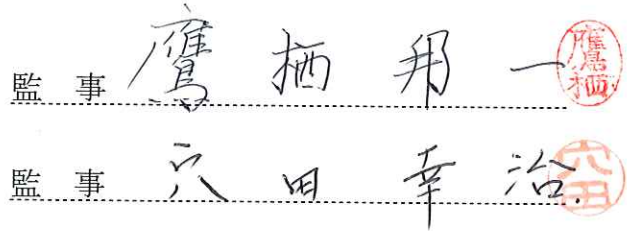 監事 鷹栖邦一 鷹栖
監事 穴田幸治 穴田